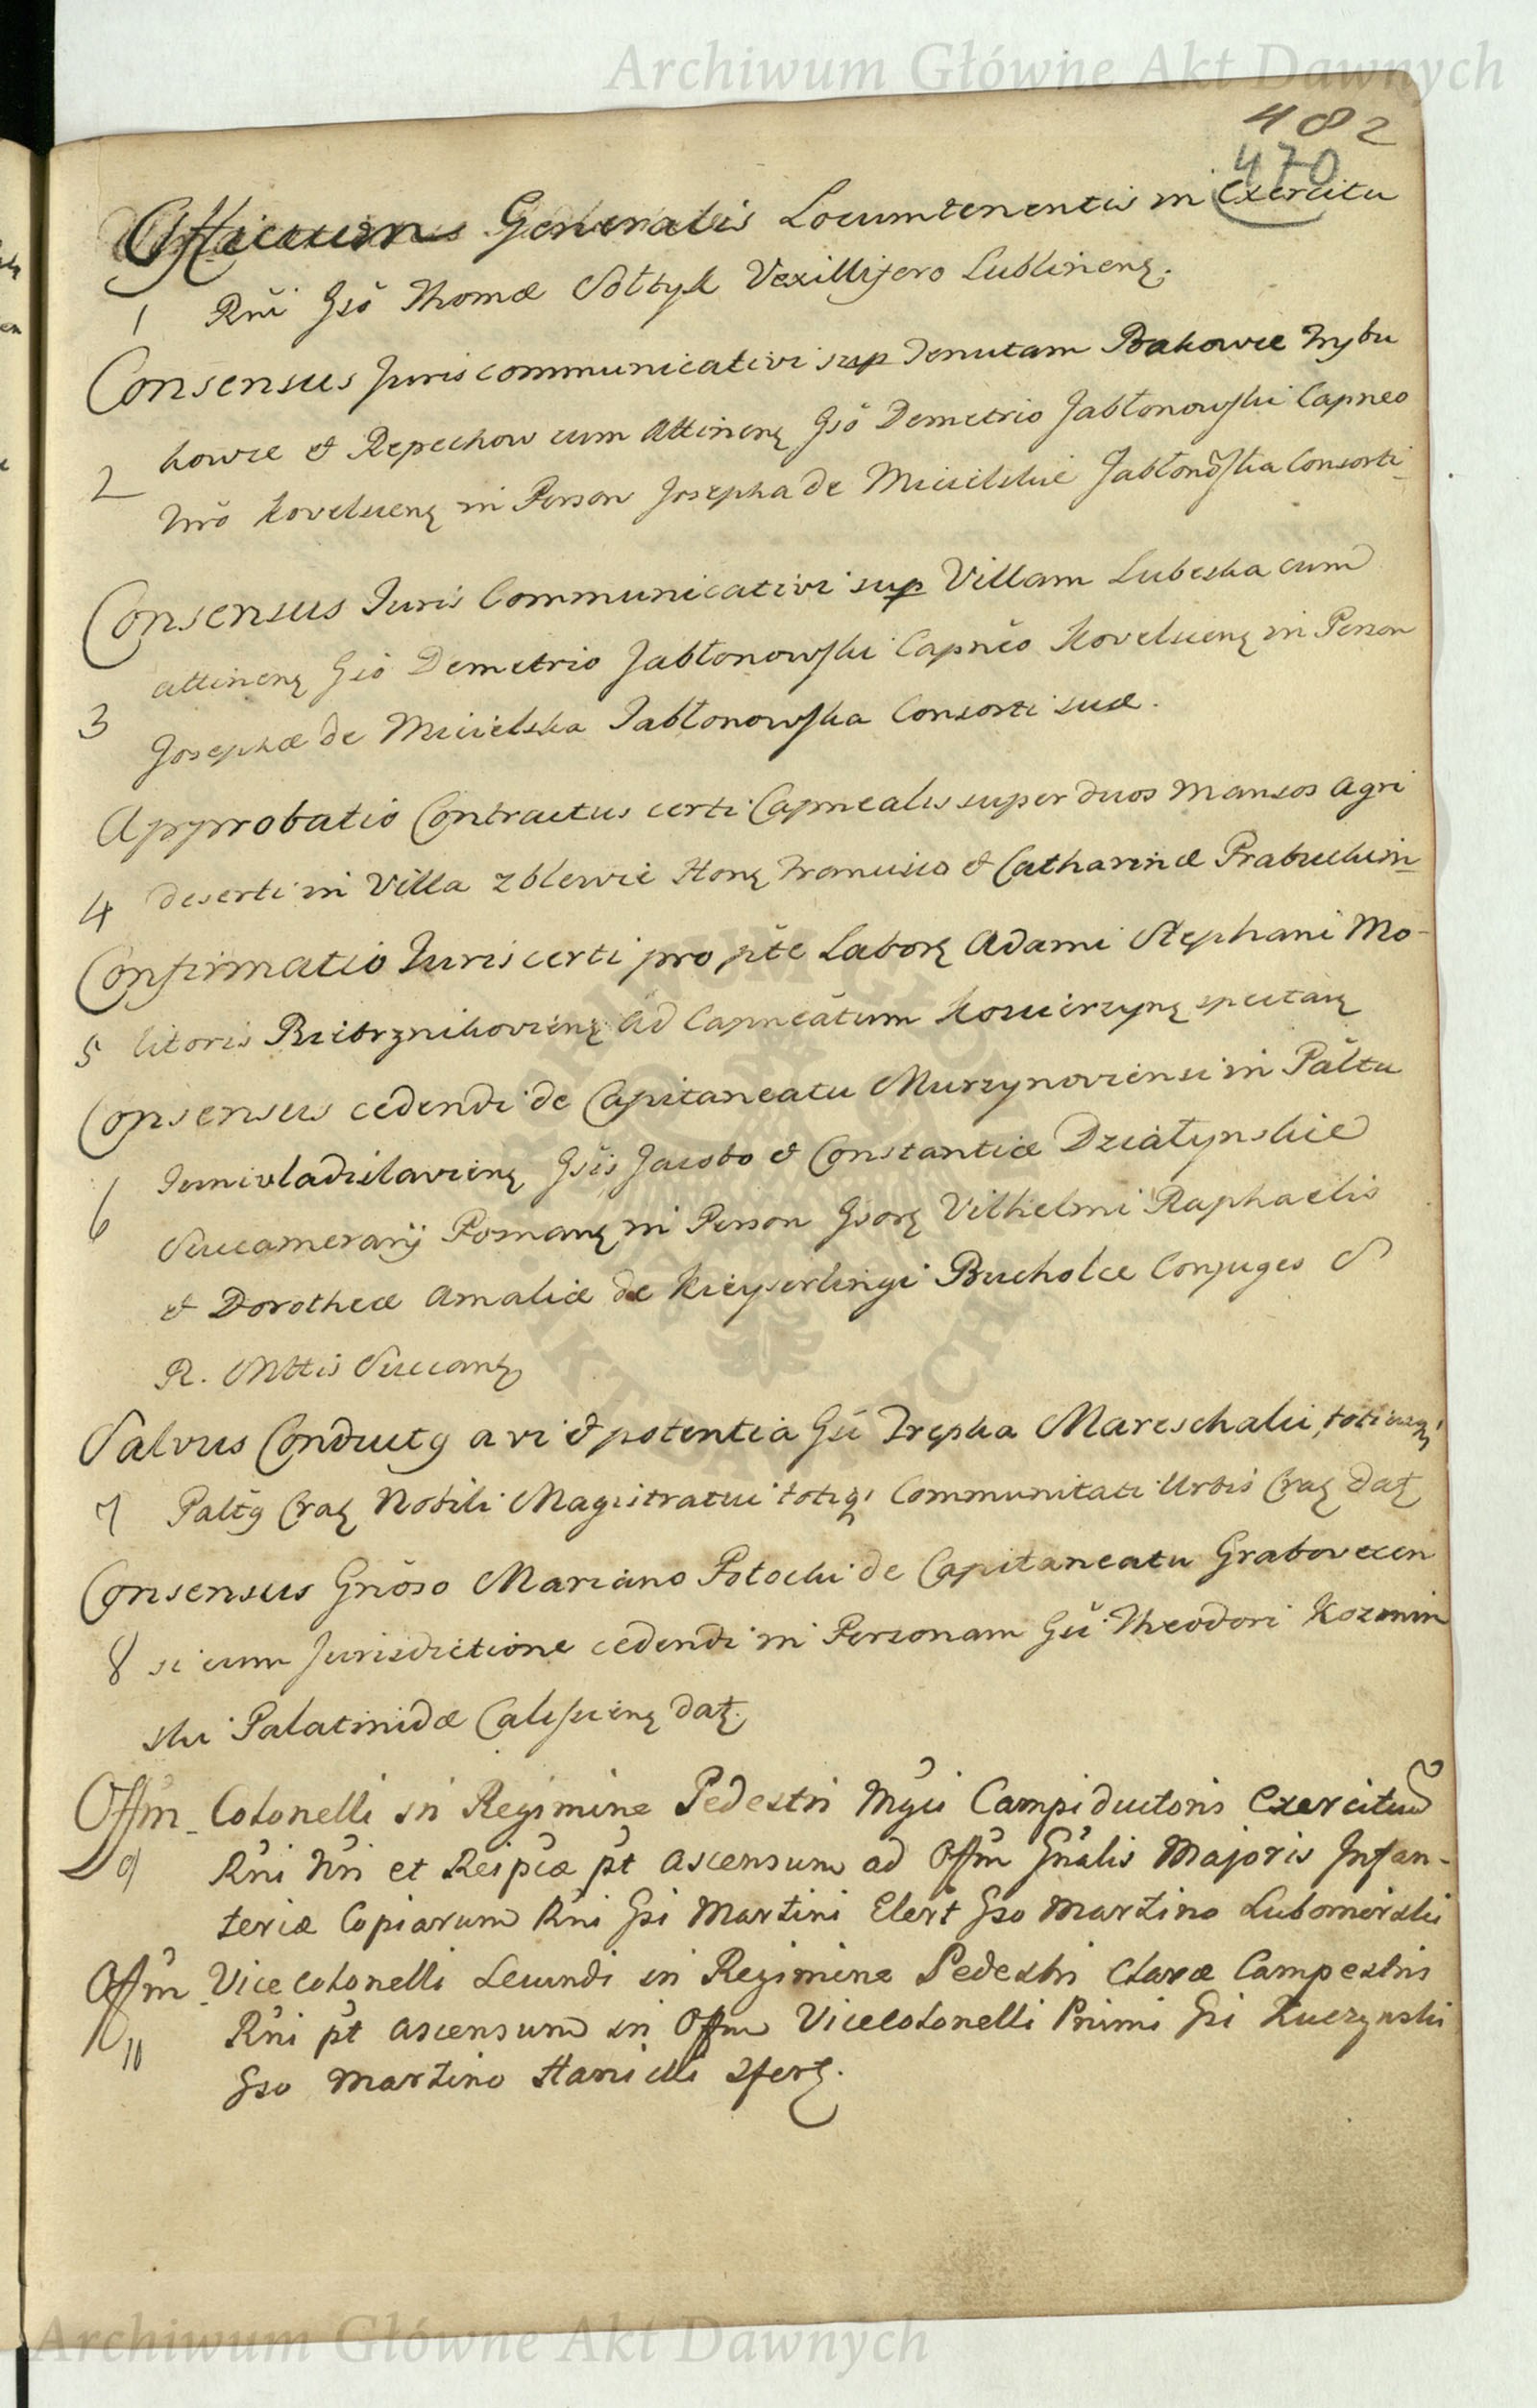 Archiwum Główne Akt Dawnych
482
470
Officium Generalis Locumtenentis in Exercitu
1 Rni Gso Thomæ Sołtyk Vexillifero Lublinenȝ.
Consensus Juris communicativi sup Tenutam Bakowce Hrybu
kowce & Repechow cum Attinenȝ Gso Demetrio Jabłonowski Capneo
2 Nro Kovelscenȝ in Person Josepha de Micielskie Consorti
Consensus Juris Communicativi sup Villam Lubeska cum
attinenȝ Gso Demetrio Jabłonowski Capnĕo Kovelscenȝ in Person
3 Josephæ de Micielska Jabłonowska Consorti suæ.
Approbatio Contractus certi Capnealis super duos mansos agri
4 deserti in Villa Zblewie Honȝ Francisco & Catharinæ
Confirmatio Juris certi pro pte Laborȝ Adami Stephani Mo-
5 litoris ad Capneătum spectanȝ
Consensus cedendi de Capitaneatu Murzynoviensi in Păltu
6 Junivladislavienȝ Gsis Jacobo & Constantiæ Działynskie
Succamerarij Posnanȝ in Person Gsorȝ Vilhelmi Raphaelis
& Dorotheæ Amaliæ de Kieyserlingi Bucholce Conjuges S
R. Mttis Succamȝ
Salvus Conductꝯ a vi & potentia Gsi Trepka Mareschalci,
7 Paltꝯ Craȝ Nobili Magistratui totiqȝ Communitati Urbis Craȝ datȝ
Consensus Gnŏso Mariano Potocki de Capitaneatu Grabovecen
8 si cum Jurisdictione cedendi in Personam Gsi Theodori Kozmin
ski Palatinidæ Calissienȝ datȝ.
Offm Colonelli in Regimine Pedestri Mgci Campiductoris Exercituũ
9 Rni Nri et Reipcæ pt ascensum ad Offm Gnalis Majoris Infan-
teriæ Copiarum Rni Gsi Martini Elert Gso Martino Lubomirski
Offm Vicecolonelli Secundi in Regimine Pedestri Clavæ Campestris
10 Rni pt ascensum in Offm Vicecolonelli Primi Gsi Kuczynski
Gso Martino
Archiwum Główne Akt Dawnych